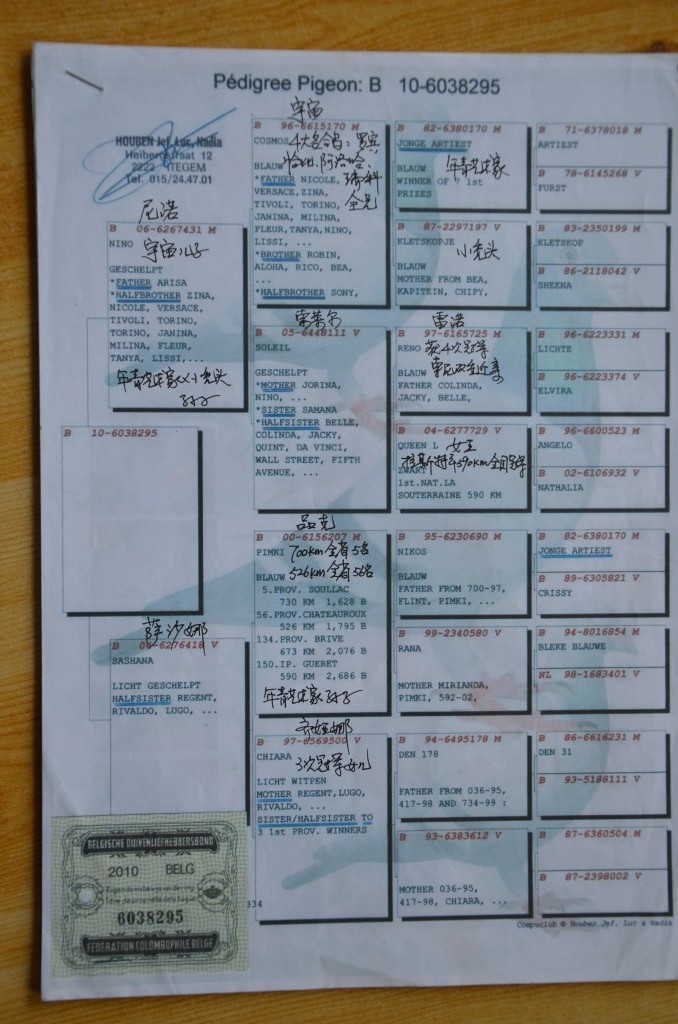 Pédigree Pigeon: B 10-6038295
HOUBEN Jef, Luc, Nadia
Heibergstraat 12
2222 ITEGEM
Tel. 015/24.47.01
尼诺
B 06-6267431 M
NINO
宇宙儿子
GESCHELPT
*FATHER ARISA
*HALFBROTHER ZINA,
NICOLE, VERSACE,
TIVOLI, TORINO,
TORINO, JANINA,
MILINA, FLEUR,
TANYA, LISSI,...
年青艺术家X小秃头
孙子
B 10-6038295
萨沙娜
SASHANA
LICHT GESCHELPT
HALFSISTER REGENT,
RIVALDO, LUGO, ...
宇宙
B 96-6615170 M
COSMOS
BLAUW
*FATHER NICOLE,
VERSACE,ZINA,
TIVOLI, TORINO,
JANINA, MILINA,
FLEUR,TANYA,NINO,
LISSI, ...
*BROTHER ROBIN,
ALOHA, RICO, BEA,
...
*HALFBROTHER SONY,
B 05-6448111 V
SOLEIL
GESCHELPT
*MOTHER JORINA,
NINO, ...
*SISTER SAMANA
*HALFSISTER BELLE,
COLINDA, JACKY,
QUINT, DA VINCI,
WALL STREET, FIFTH
AVENUE, ...
品克
B 00-6156207 M
PIMKI 700km全省5名
BLAUW 526km全省56名
5.PROV. SOULLAC
730 KM 1,628 B
56.PROV.CHATEAUROUX
526 KM 1,795 B
134.PROV. BRIVE
673 KM 2,076 B
150.IP. GUERET
590 KM 2,686 B
年青艺术家孙子
齐娅娜
B 97-6569500 V
CHIARA
3次冠军女儿
LICHT WITPEN
MOTHER REGENT,LUGO,
RIVALDO, ...
SISTER/HALFSISTER TO
3 1st PROV. WINNERS
B 82-6380170 M
JONGE ARTIEST
BLAUW 年青艺术家
WINNER OF 7 1st
PRIZES
B 87-2297197 V
KLETSKOPJE
小秃头
BLAUW
MOTHER FROM BEA,
KAPITEIN, CHIPY,
雷诺
B 97-6165725 M
RENO 获4次冠军
BLAUW
FATHER COLINDA,
JACKY, BELLE,
B 04-6277729 V
QUEEN L 女王
ZWART
1st.NAT.LA
SOUTERRAINE 590 KM
B 95-6230690 M
NIKOS
BLAUW
FATHER FROM 700-97,
FLINT, PIMKI, ...
B 99-2340580 V
RANA
MOTHER MIRIANDA,
PIMKI, 592-02,
B 94-6495178 M
DEN 178
FATHER FROM 036-95,
417-98 AND 734-99 :
B 93-6383612 V
MOTHER 036-95,
417-98, CHIARA, ...
B 71-6378018 M
ARTIEST
B 78-6145268 V
FURST
B 83-2350199 M
KLETSKOP
B 86-2118042 V
SHEENA
B 96-6223331 M
LICHTE
B 96-6223374 V
ELVIRA
B 96-6600523 M
ANGELO
B 02-6106932 V
NATHALIA
B 82-6380170 M
JONGE ARTIEST
B 89-6305821 V
CRISSY
B 94-8016854 M
BLEKE BLAUWE
NL 98-1683401 V
B 86-6616231 M
DEN 31
B 93-5188111 V
B 87-6360504 M
B 87-2398002 V
Compuclub © Houben Jef, Luc & Nadia
334
BELGISCHE DUIVENLIEFHEBBERSBOND
2010 BELG
Eigendomsbewijs van de ring
Titre de propriété de la bague
6038295
FEDERATION COLOMBOPHILE BELGE